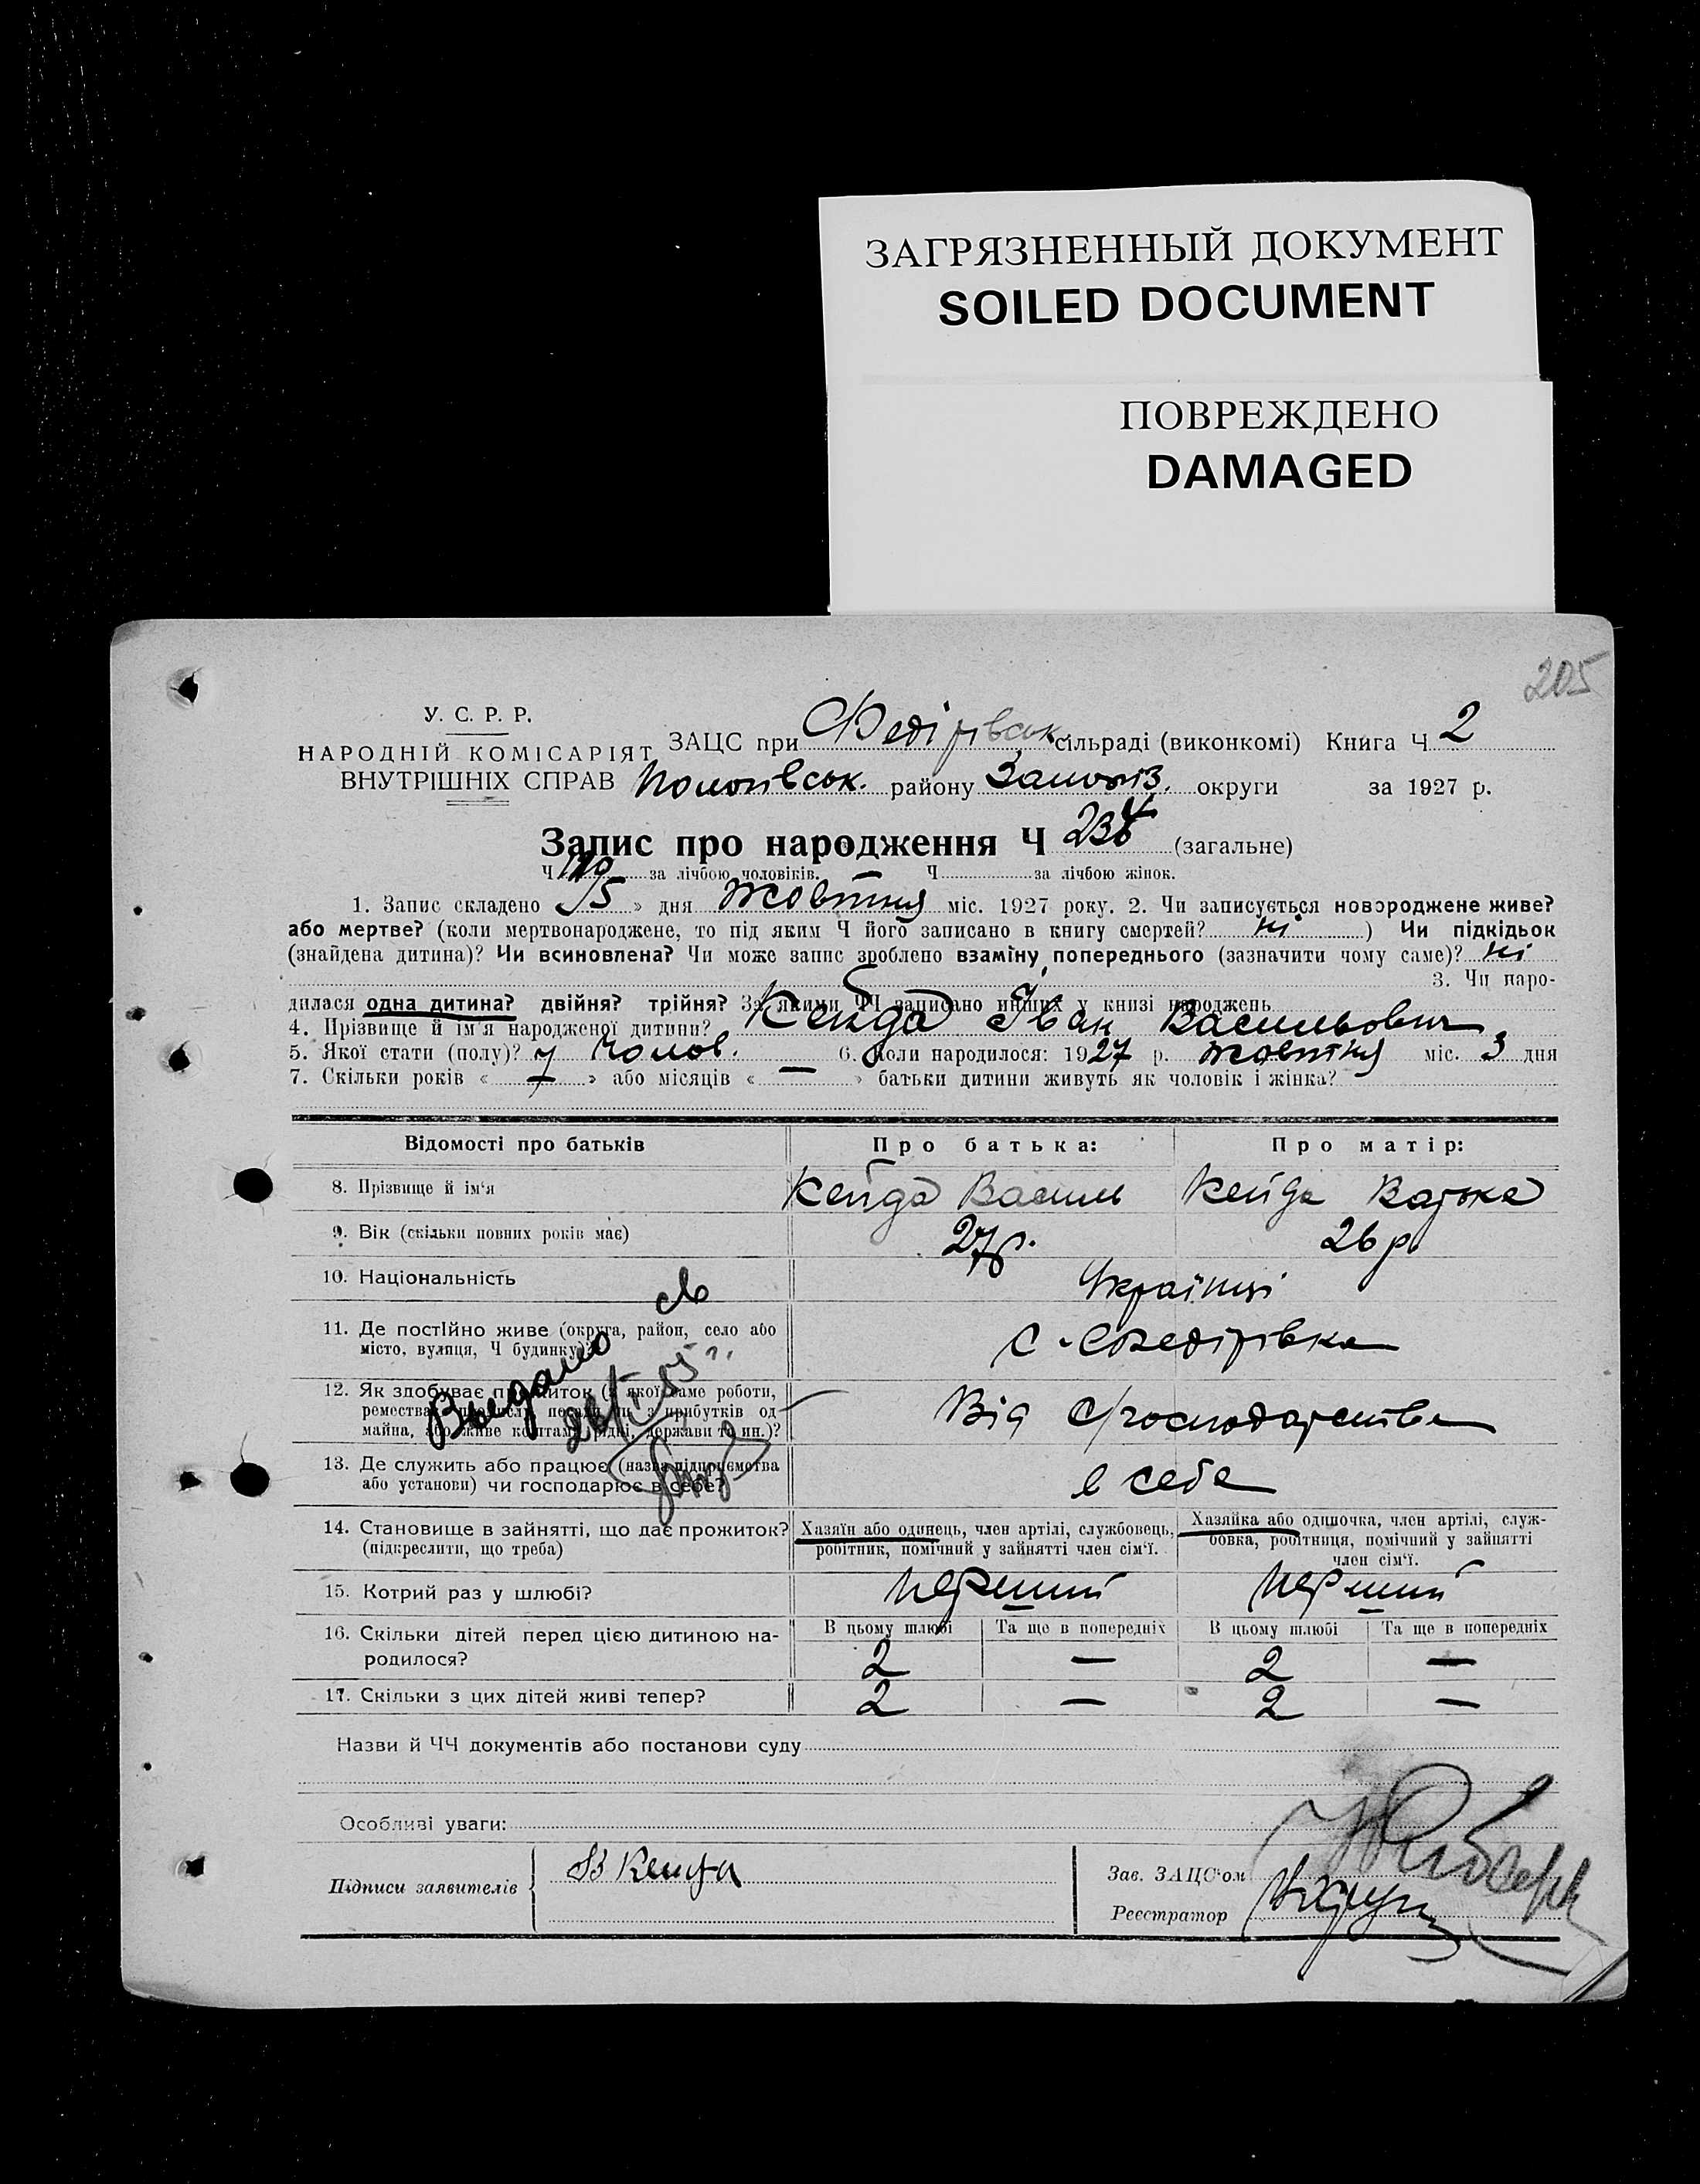 ЗАГРЯЗНЕННЫЙ ДОКУМЕНТ
SOILED DOCUMENT
ПОВРЕЖДЕНО
DAMAGED
205
У. С. Р. Р.
НАРОДНІЙ КОМІСАРІЯТ
ВНУТРІШНІХ СПРАВ
ЗАЦС при Федірівськ. сільраді (виконкомі) Книга Ч 2
Пологівськ. району Запоріз. округи за 1927 р.
Запис про народження Ч 234 (загальне)
Ч 120 за лічбою чоловіків. Ч за лічбою жінок.
1. Запис складено 5 » дня Жовтня міс. 1927 року. 2. Чи записується новороджене живе?
або мертве? (коли мертвонароджене, то під яким Ч його записано в книгу смертей? ні ) Чи підкідьок
(знайдена дитина)? Чи всиновлена? Чи може запис зроблено взаміну попереднього (зазначити чому саме)? ні
3. Чи наро-
дилася одна дитина? двійня? трійня? За якими ЧЧ записано инших у книзі народжень
4. Прізвище й ім'я народженої дитини? Кейда Іван Васильович
5. Якої стати (полу)? ч чолов. 6. Коли народилося: 1927 р. жовтня міс. 3 дня
7. Скільки років « — » або місяців « — » батьки дитини живуть як чоловік і жінка?
Відомості про батьків Про батька: Про матір:
8. Прізвище й ім'я Кейда Василь Кейда Варька
9. Вік (скільки повних років має) 27 р. 26 р
10. Національність Українці
11. Де постійно живе (округа, район, село або
місто, вулиця, Ч будинку)? с. Федірівка
12. Як здобуває прожиток (з якої саме роботи,
ремества, промислу, посади чи з прибутків од
майна, або живе коштами рідні, держави то ин.)? Від с/господарства
13. Де служить або працює (назва підприємства
або установи) чи господарює в себе? в себе
Выдано св
14. Становище в зайнятті, що дає прожиток?
(підкреслити, що треба)
Хазяїн або одинець, член артілі, службовець,
робітник, помічний у зайнятті член сім'ї.
Хазяйка або одиночка, член артілі, служ-
бовка, робітниця, помічний у зайнятті
член сім'ї.
15. Котрий раз у шлюбі? перший перший
16. Скільки дітей перед цією дитиною на-
родилося?
В цьому шлюбі Та ще в попередніх В цьому шлюбі Та ще в попередніх
2 — 2 —
17. Скільки з цих дітей живі тепер? 2 — 2 —
Назви й ЧЧ документів або постанови суду
Особливі уваги:
Підписи заявителів В Кейда
Зав. ЗАЦС'ом
Реєстратор